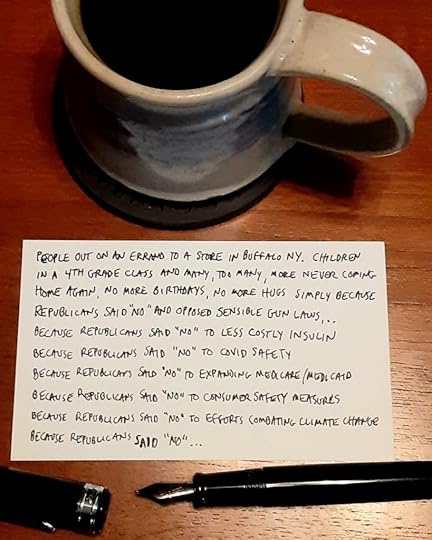 PEOPLE OUT ON AN ERRAND TO A STORE IN BUFFALO NY. CHILDREN
IN A 4TH GRADE CLASS AND MANY, TOO MANY, MORE NEVER COMING
HOME AGAIN, NO MORE BIRTHDAYS, NO MORE HUGS SIMPLY BECAUSE
REPUBLICANS SAID "NO" AND OPPOSED SENSIBLE GUN LAWS...
BECAUSE REPUBLICANS SAID "NO" TO LESS COSTLY INSULIN
BECAUSE REPUBLICANS SAID "NO" TO COVID SAFETY
BECAUSE REPUBLICANS SAID "NO" TO EXPANDING MEDICARE/MEDICAID
BECAUSE REPUBLICANS SAID "NO" TO CONSUMER SAFETY MEASURES
BECAUSE REPUBLICANS SAID "NO" TO EFFORTS COMBATING CLIMATE CHANGE
BECAUSE REPUBLICANS SAID "NO"...